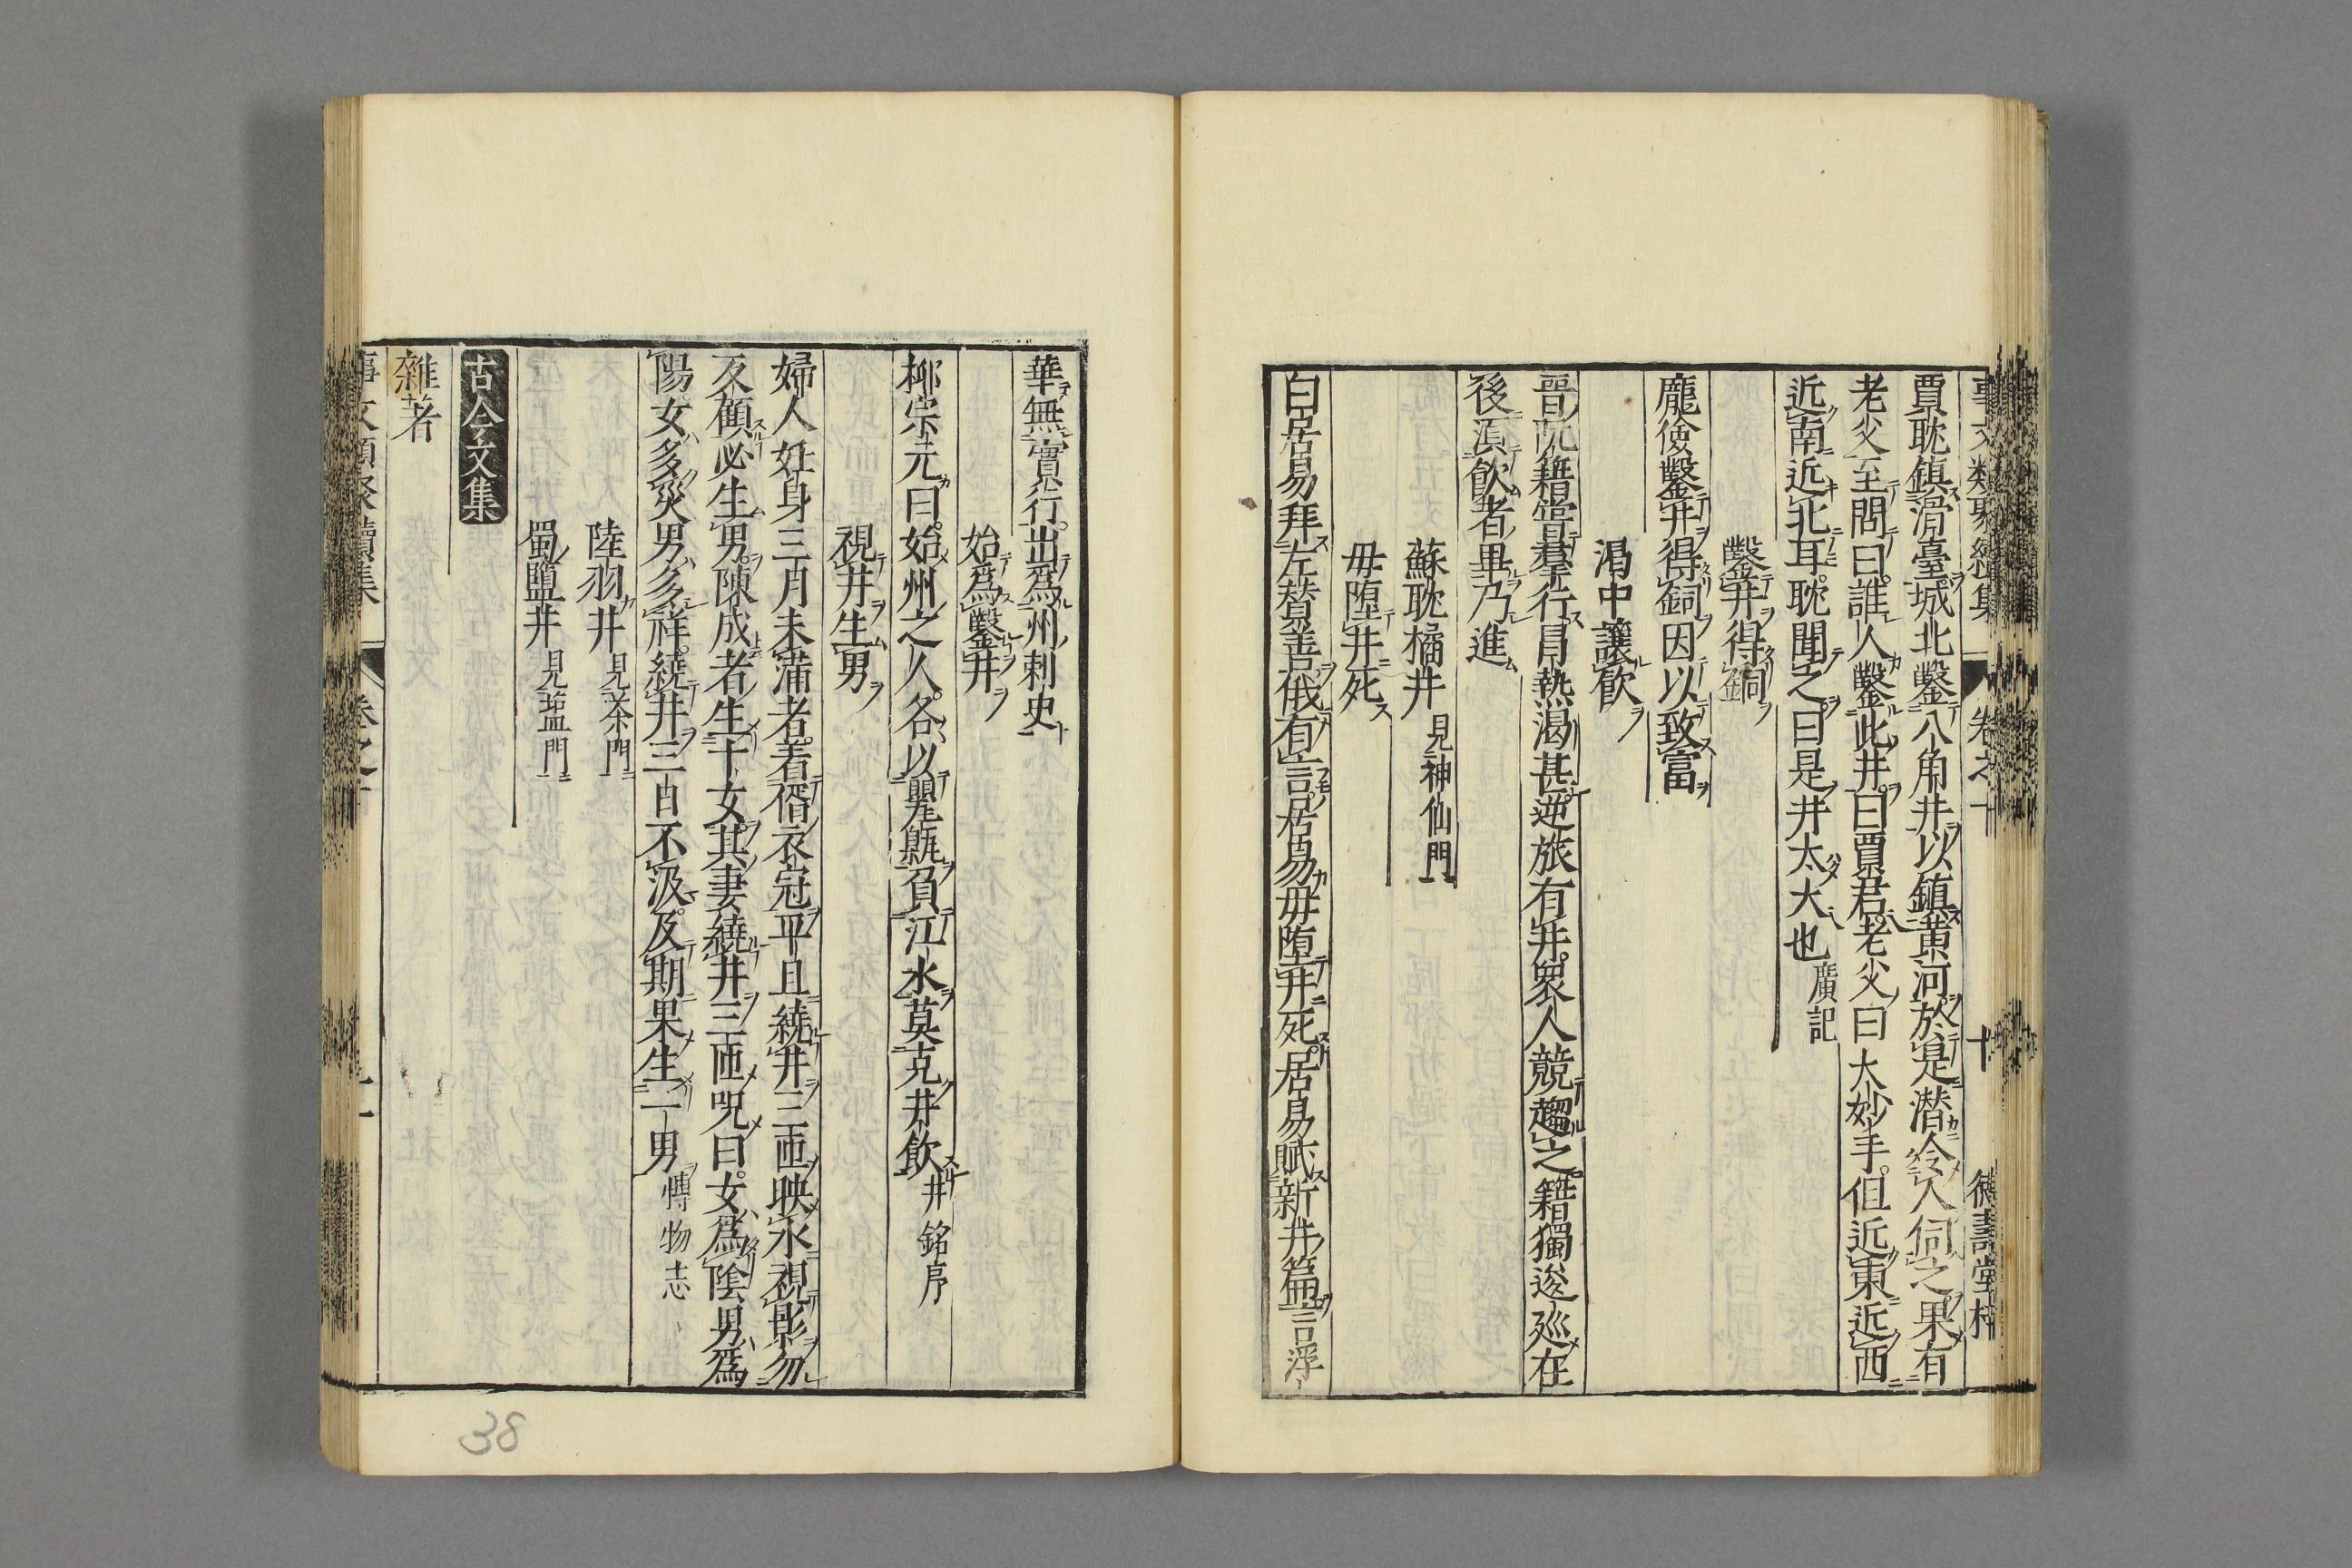 事文類聚續集 卷之十 十 德壽堂梓
賈耽鎮滑臺城北鑿八角井以鎮黄河於是潜令人伺之果有
老父至問曰誰人鑿此井曰賈君老父曰大妙手但近東近西
近南近北耳耽聞之曰是井太大也 廣記
鑿井得銅
龐儉鑿井得銅因以致富
渇中讓飮
晉阮籍嘗羣行冐熱渇甚逆旅有井衆人競趨之籍獨逡廵在
後湏飲者畢乃進
蘇耽橘井 見神仙門
毋堕井死
白居易拜左賛善俄有言居易毋堕井死居易賦新井篇言浮
華無實行出爲州刺史
始爲鑿井
柳宗元曰始州之人各以甖甀負江水莫克井飲 井銘序
視井生男
婦人姙身三月未滿者着䘚衣冠平旦繞井三匝映水視影勿
反顧必生男陳成者生十女其妻繞井三匝呪曰女爲陰男爲
陽女多災男多祥繞井三日不汲及期果生一男 愽物志
陸羽井 見茶門
蜀鹽井 見塩門
古今文集
雜著
事文類聚續集 卷之十
38